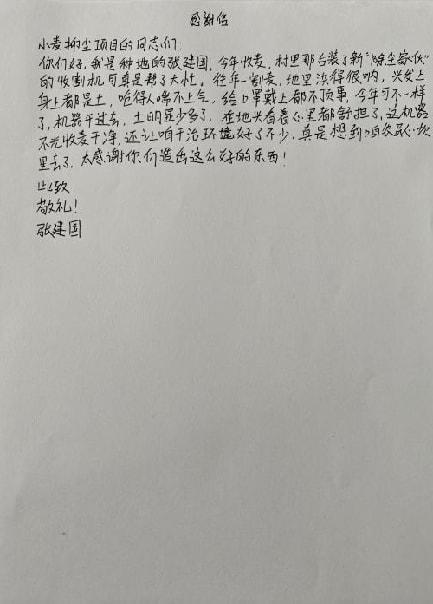 感谢信
小麦抑尘项目的同志们
你们好,我是种地的张建国,今年收麦,村里那台装了新"除尘装
的收割机可真是帮了大忙。往年一割麦,地里浑得很呐,头发上
身上都是土,呛得人喘不上气,给口罩戴上都不顶事,今年可不一样
了,机器干过去,土明显少多了,在地头看着心里都舒坦了,这机器
不光收麦干净,还让咱干活环境好了不少,真是想到咱农民心坎
里去了,太感谢你们造出这么好的东西!
此致
敬礼!
张建国